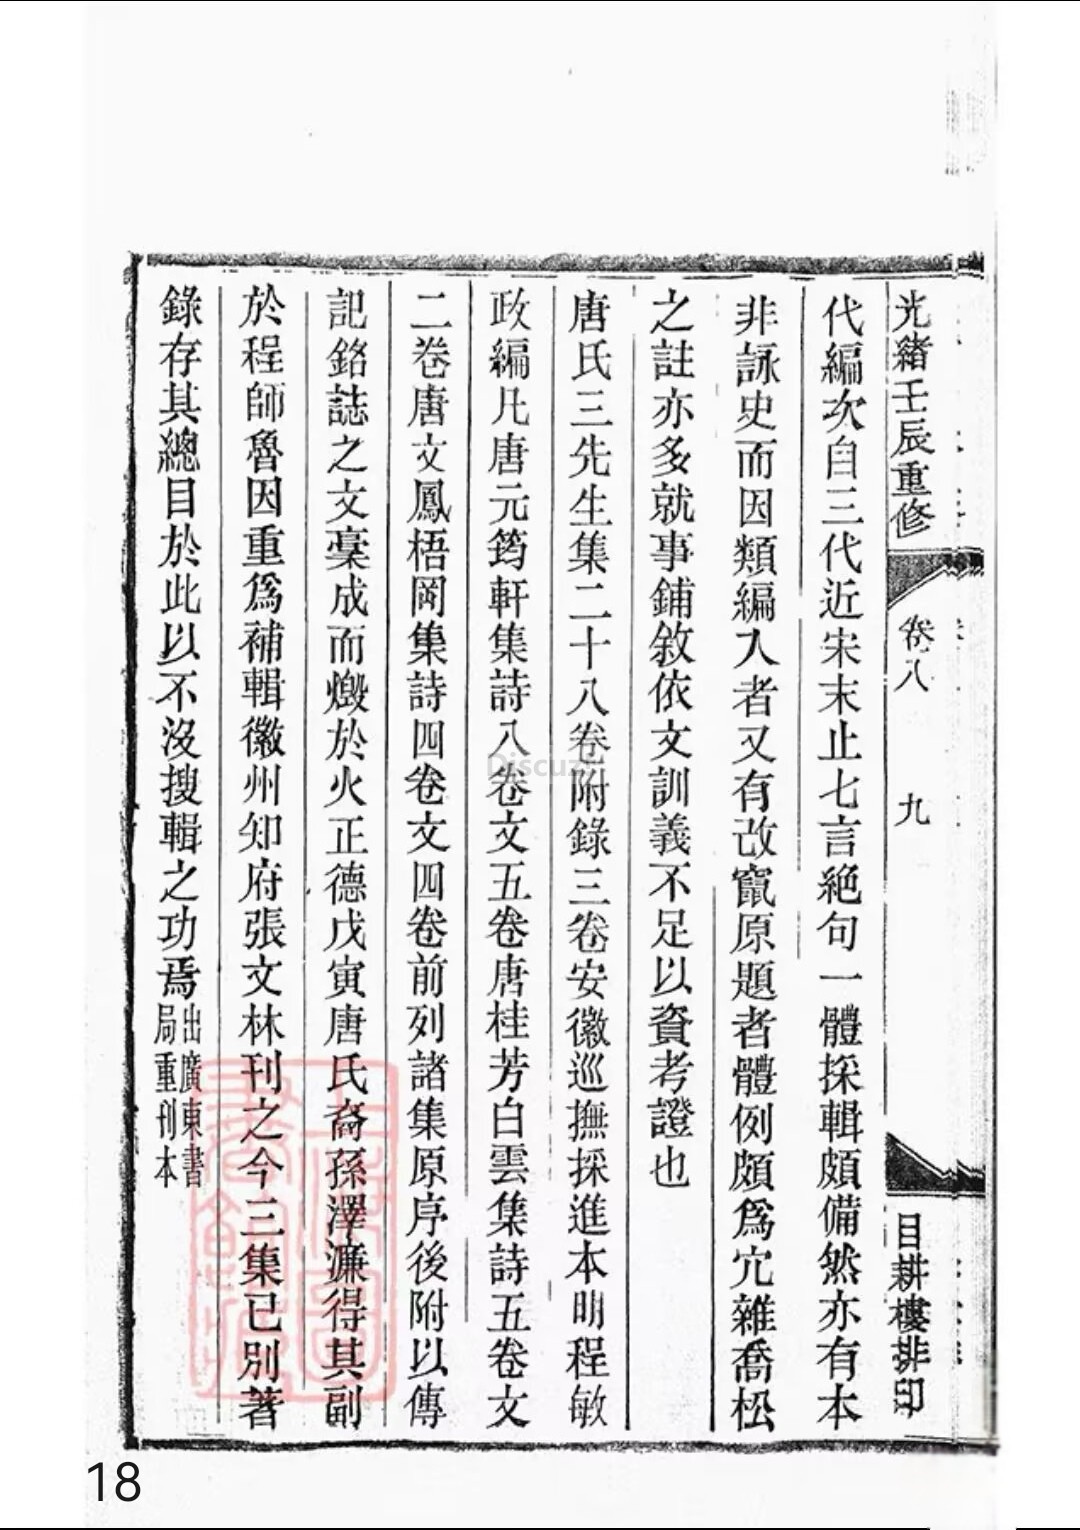 光緒壬辰重修
卷八
九
目耕樓排印
代編次自三代近宋末止七言絕句一體採輯頗備然亦有本
非詠史而因類編入者又有改竄原題者體例頗爲冗雜喬松
之註亦多就事鋪敘依文訓義不足以資考證也
唐氏三先生集二十八卷附錄三卷安徽巡撫採進本明程敏
政編凡唐元筠軒集詩八卷文五卷唐桂芳白雲集詩五卷文
二卷唐文鳳梧岡集詩四卷文四卷前列諸集原序後附以傳
記銘誌之文稾成而燬於火正德戊寅唐氏裔孫澤濂得其副
於程師魯因重爲補輯徽州知府張文林刊之今三集已別著
錄存其總目於此以不沒搜輯之功焉
出廣東書
局重刊本
上海圖
書館藏
Discuz!
18